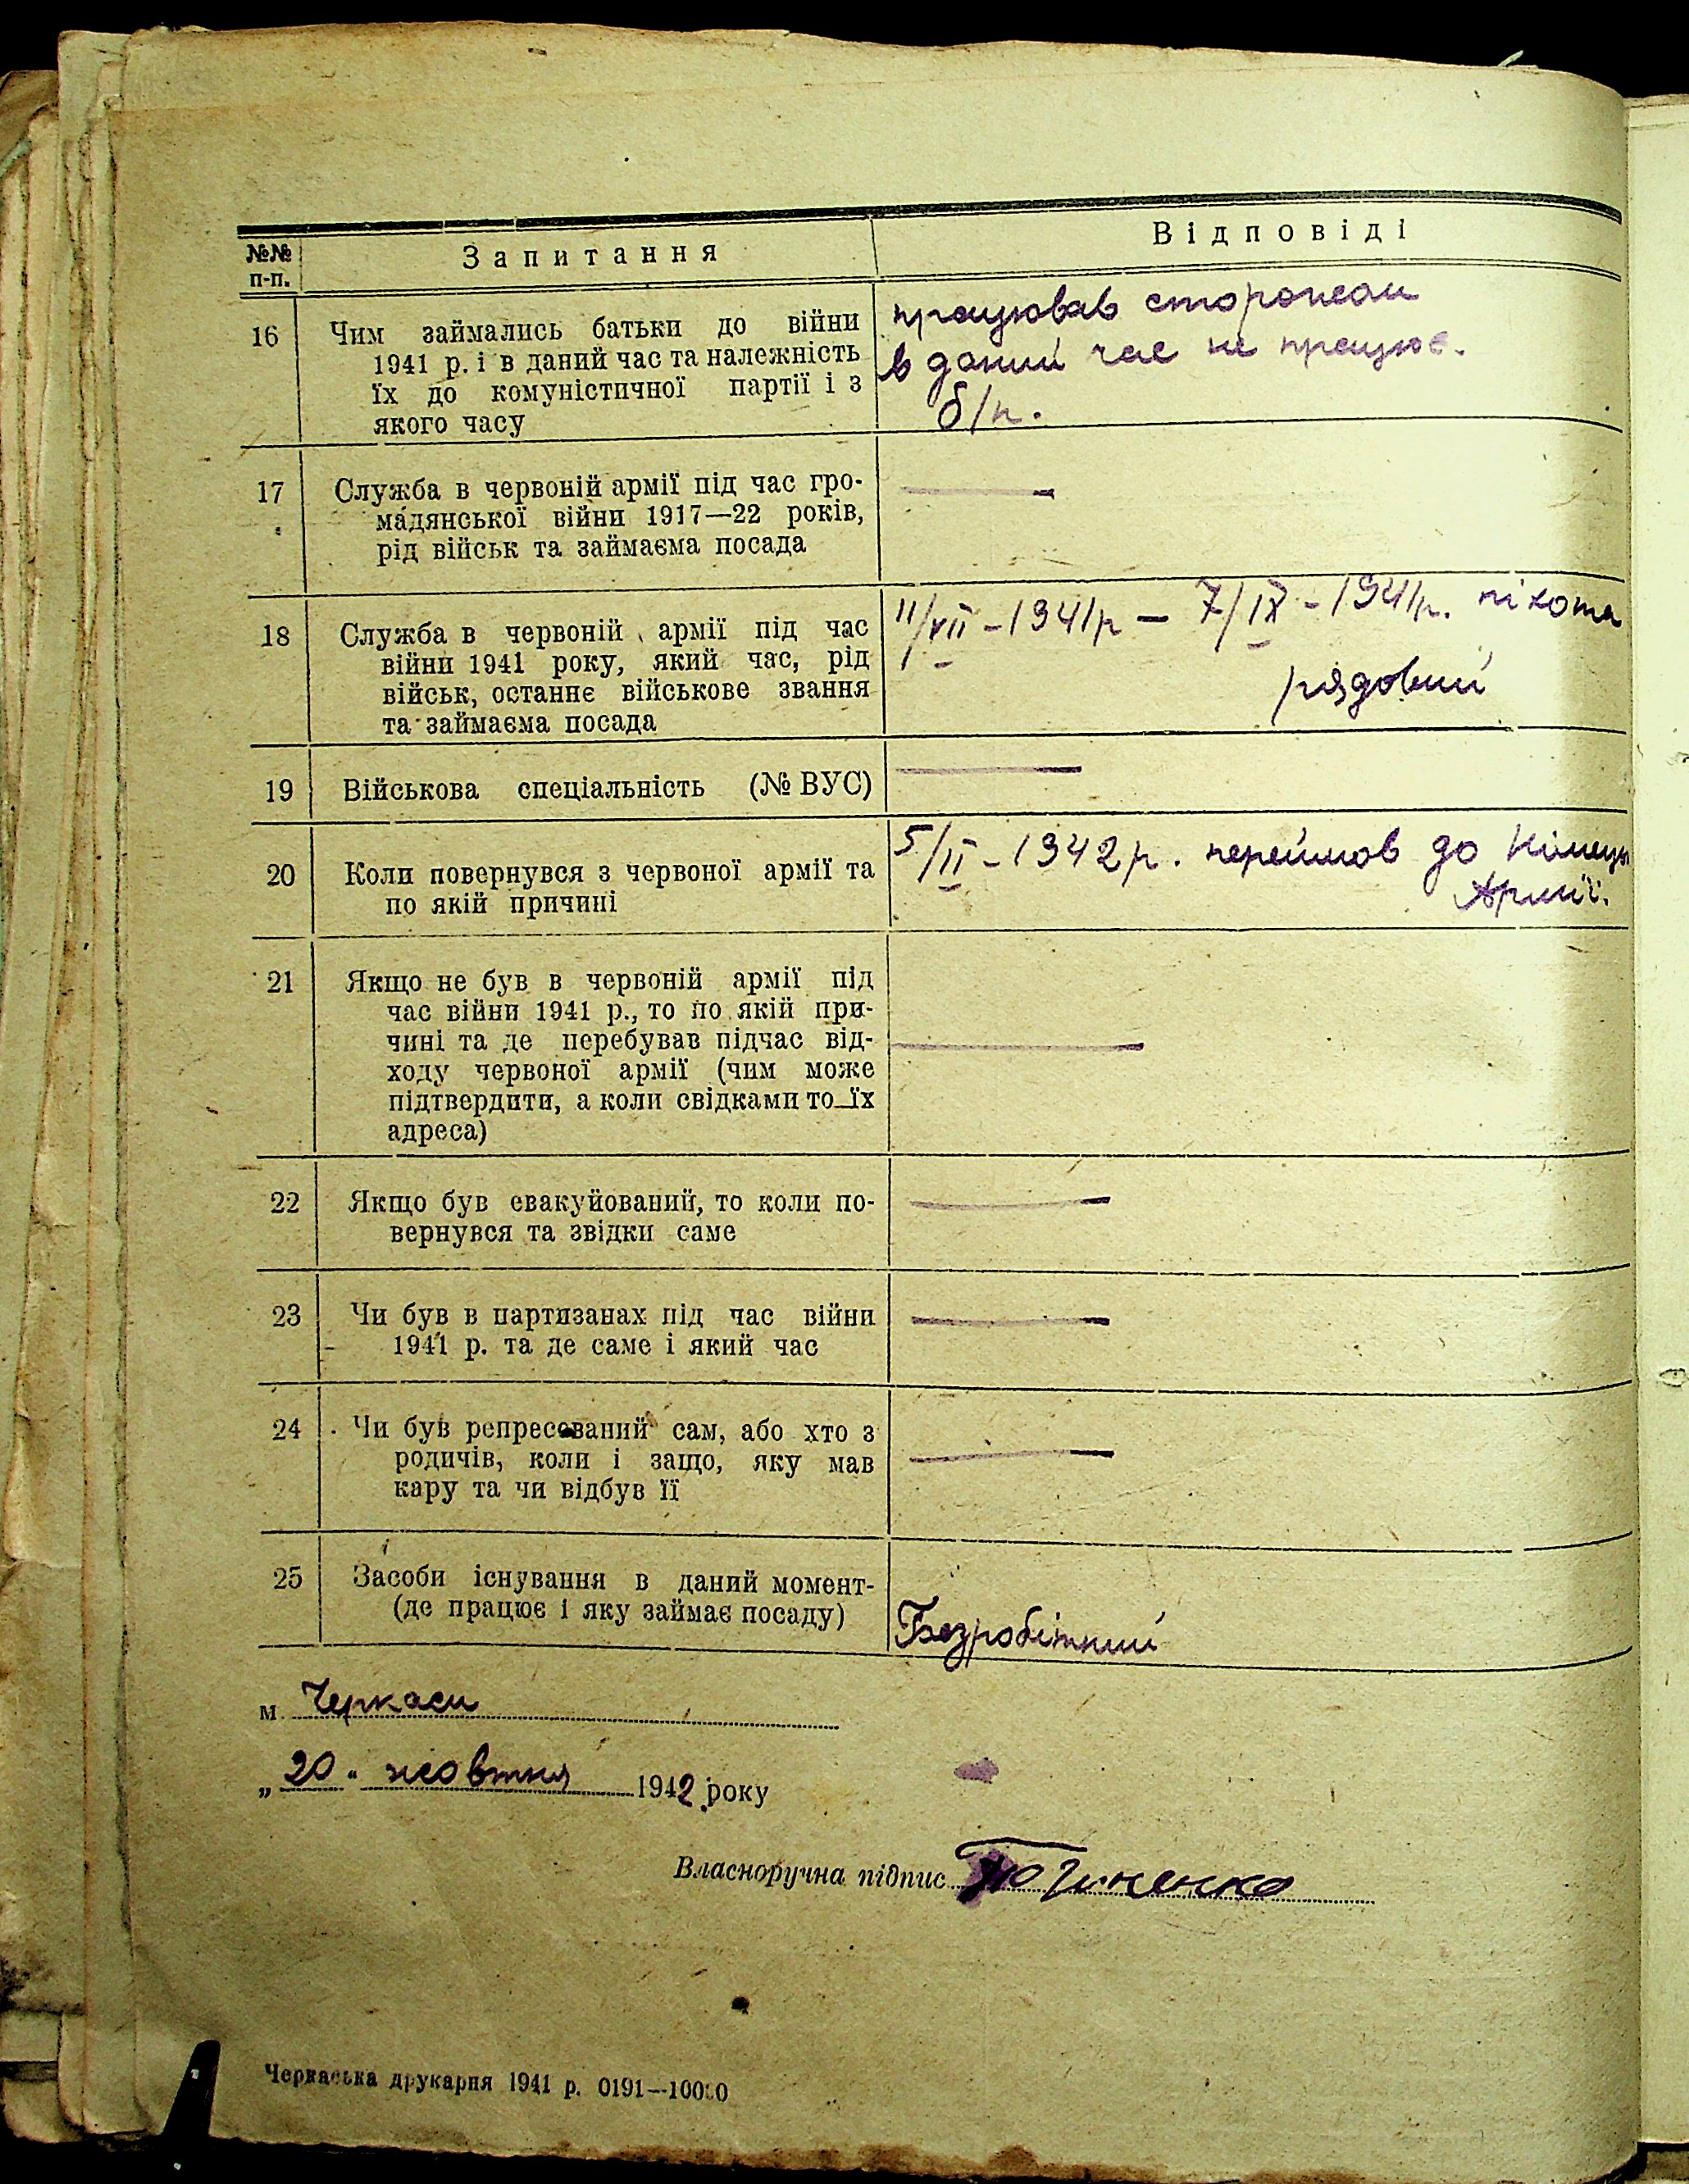 №№ п-п. Запитання Відповіді
16 Чим займались батьки до війни
1941 р. і в даний час та належність
їх до комуністичної партії і з
якого часу
працював сторожем
в даний час не працює.
б/п.
17 Служба в червоній армії під час гро-
мадянської війни 1917—22 років,
рід військ та займаєма посада
18 Служба в червоній армії під час
війни 1941 року, який час, рід
військ, останнє військове звання
та займаєма посада
11/VII - 1941р — 7/IX - 1941р. піхота
рядовий
19 Військова спеціальність (№ ВУС)
20 Коли повернувся з червоної армії та
по якій причині
5/II - 1942 р. перейшов до
Армії.
21 Якщо не був в червоній армії під
час війни 1941 р., то по якій при-
чині та де перебував підчас від-
ходу червоної армії (чим може
підтвердити, а коли свідками то їх
адреса)
22 Якщо був евакуйований, то коли по-
вернувся та звідки саме
23 Чи був в партизанах під час війни
1941 р. та де саме і який час
24 Чи був репресований сам, або хто з
родичів, коли і защо, яку мав
кару та чи відбув її
25 Засоби існування в даний момент-
(де працює і яку займає посаду)
Безробітний
м. Черкаси
„20" жовтня 1942 року
Власноручна підпис
Черкаська друкарня 1941 р. 0191—10000